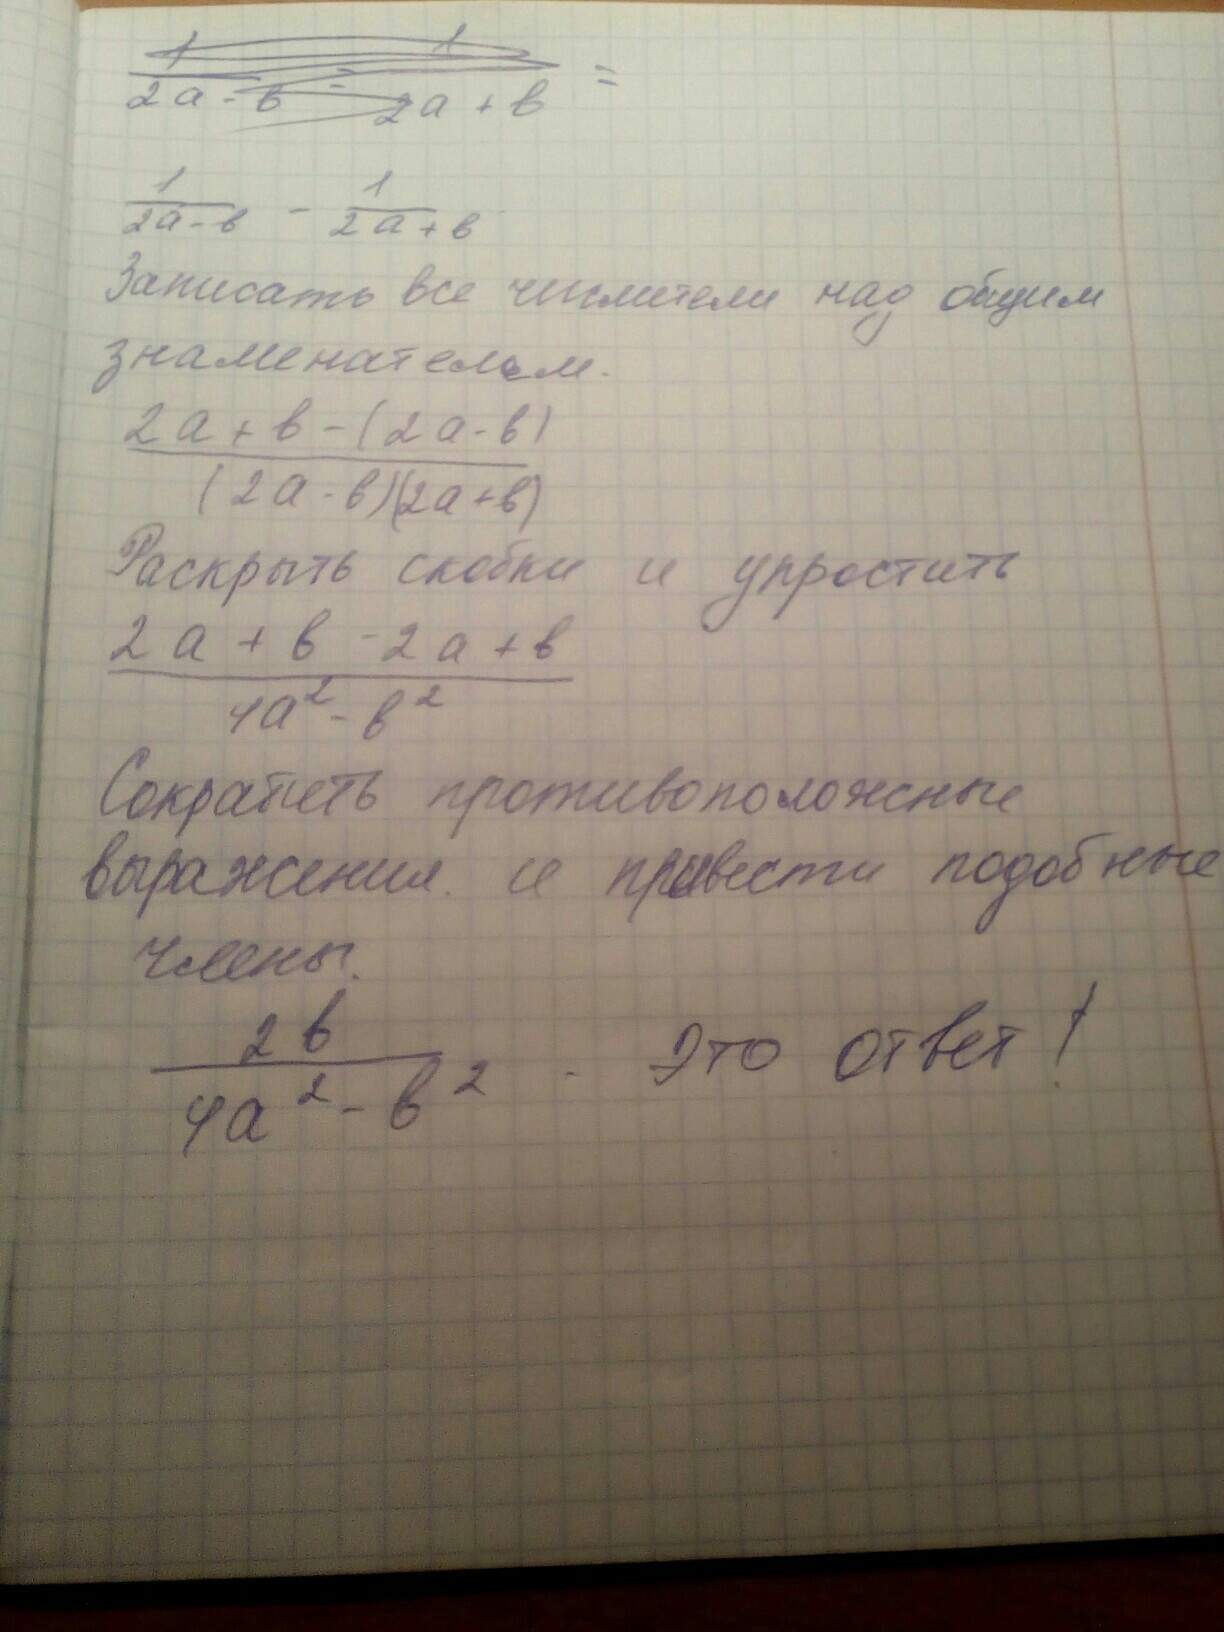 1 / 2а - в - 1 / 2а + в =
1 / 2а - в - 1 / 2а + в
Записать все числители над общим
знаменателем.
2а + в - (2а - в)
(2а - в)(2а + в)
Раскрыть скобки и упростить
2а + в - 2а + в
4а² - в²
Сократить противоположные
выражения. и привести подобные
члены.
2в
4а² - в² - это ответ!